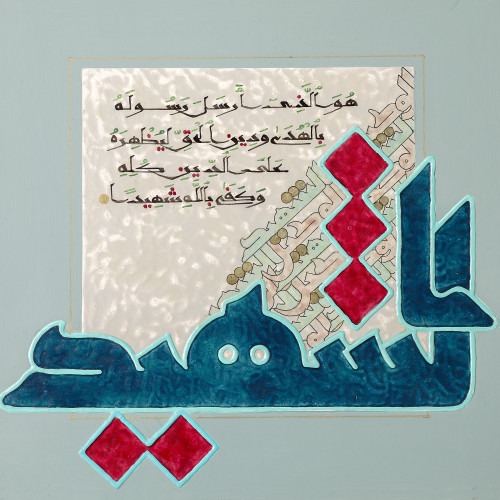 هُوَ الَّذِي أَرْسَلَ رَسُولَهُ
بِالْهُدَى وَدِينِ الْحَقِّ لِيُظْهِرَهُ
عَلَى الدِّينِ كُلِّهِ
وَكَفَى بِاللَّهِ شَهِيدًا
الشهيد